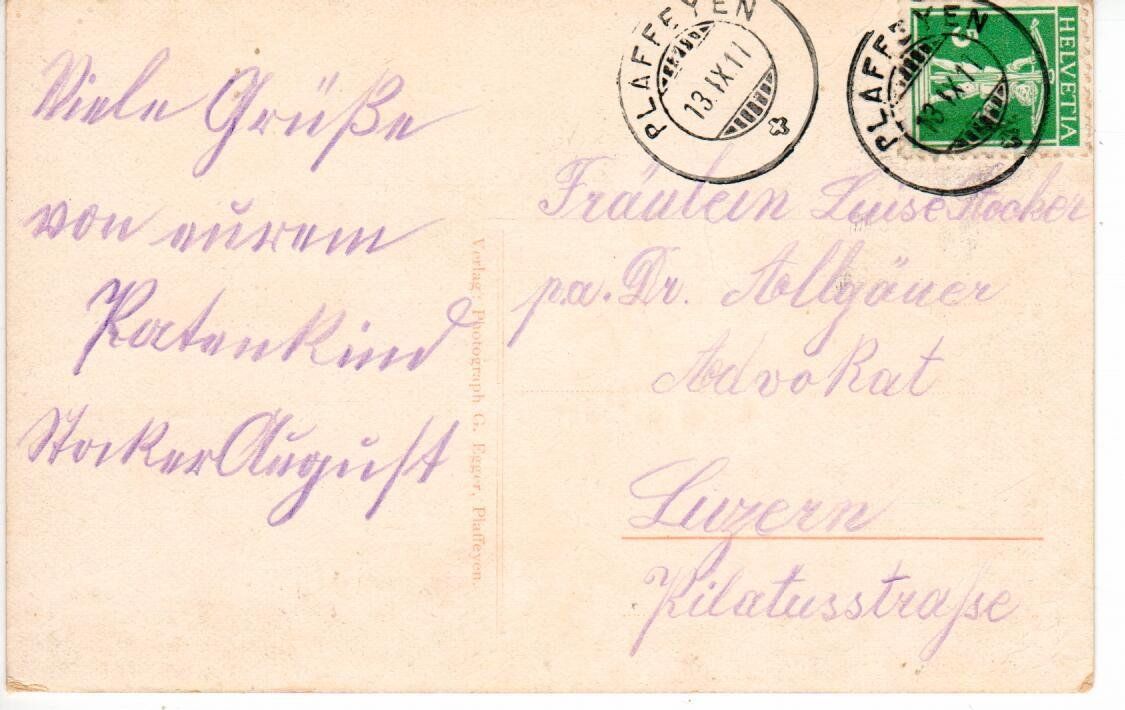 Viele Grüße
von eurem
Patenkind
Stocker August
Verlag: Photograph G. Egger, Plaffeyen.
PLAFFEYEN
13.IX.11
PLAFFEYEN
13.IX.11
HELVETIA
5
Fräulein Luise Stocker
p.a. Dr. Allgäuer
Advokat
Luzern
Pilatusstraße